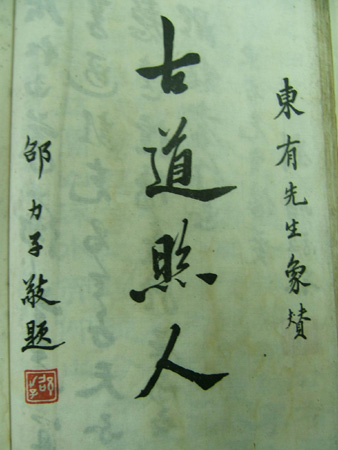 東有先生象贊
古道照人
邵力子敬題